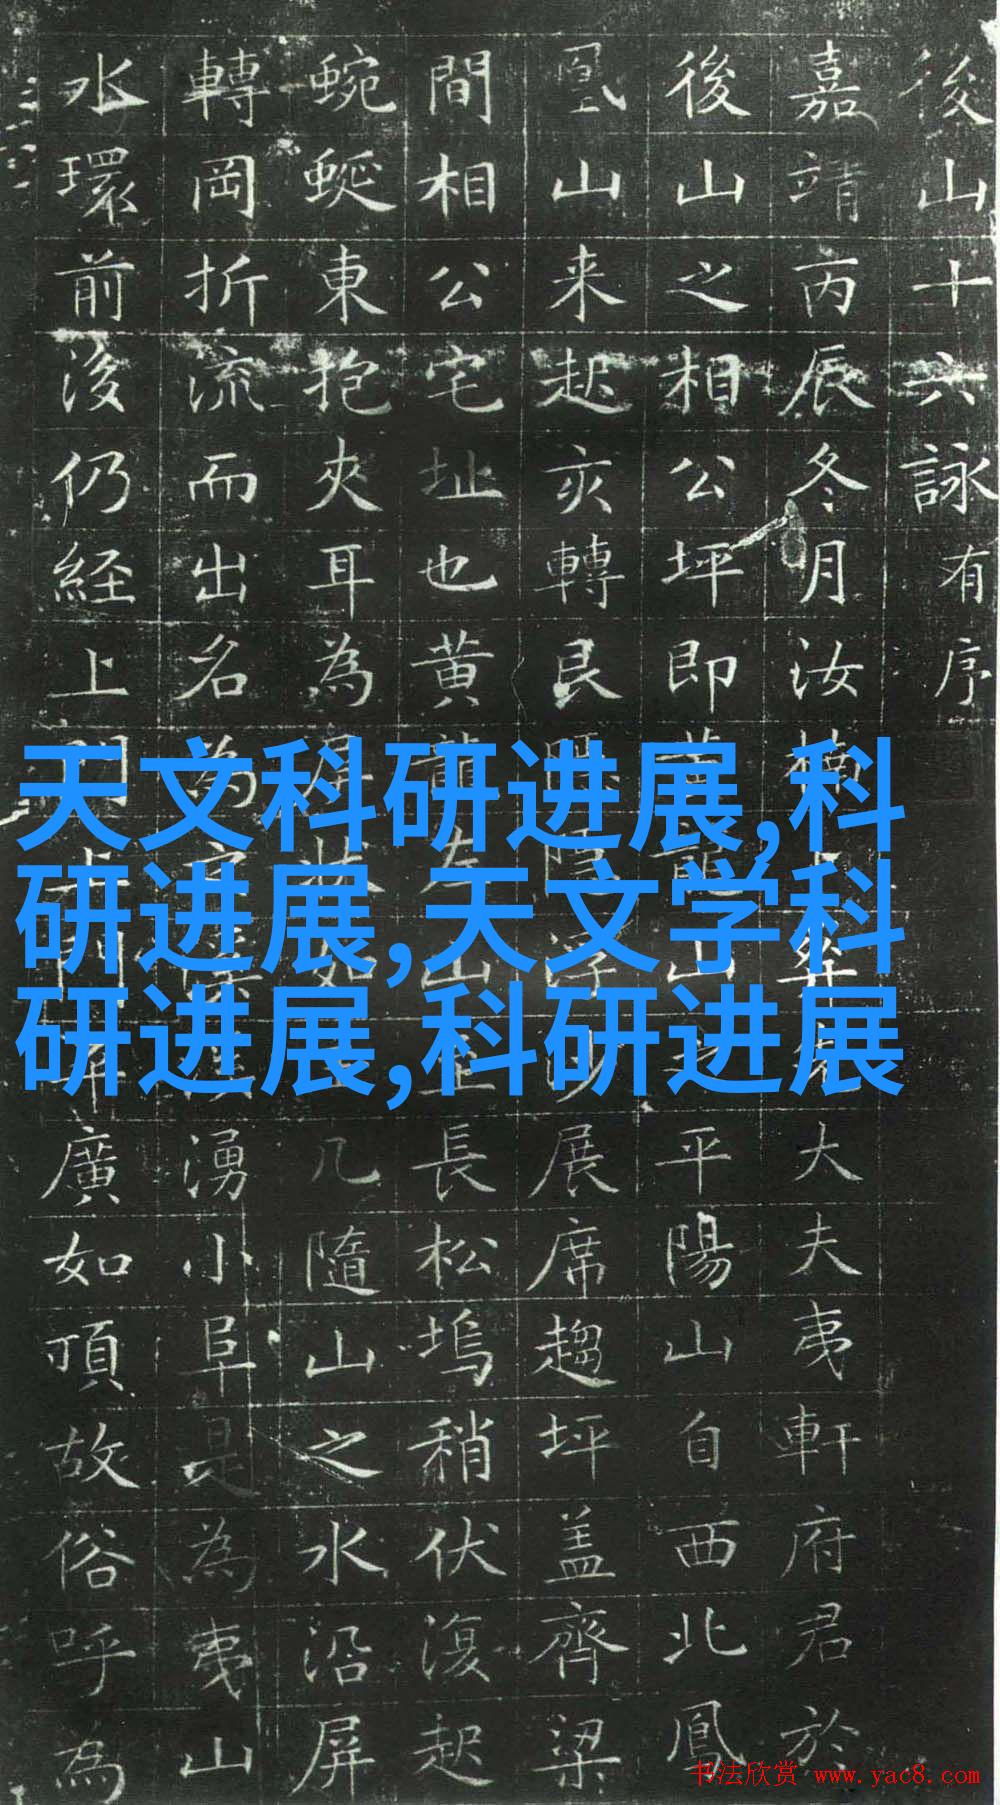 後山十六詠有序
嘉靖丙辰冬月汝楠葬先大夫夷軒府君於
後山之相公坪即黃龍山之平陽山自西北鳳
凰山来起亥轉艮展席趨坪盖齊梁
間相公宅址也黃龍左山長松塢稍伏復起
蜿蜒東抱夾耳為屏狀如几隨山之水沿屏
轉岡折流而出名為湧小阜是為夷山
水環前後仍経上門上門廣如頂故俗呼為
天文科研进展,科
研进展,天文学科
研进展,科研进展
书法欣赏 www.yac8.com